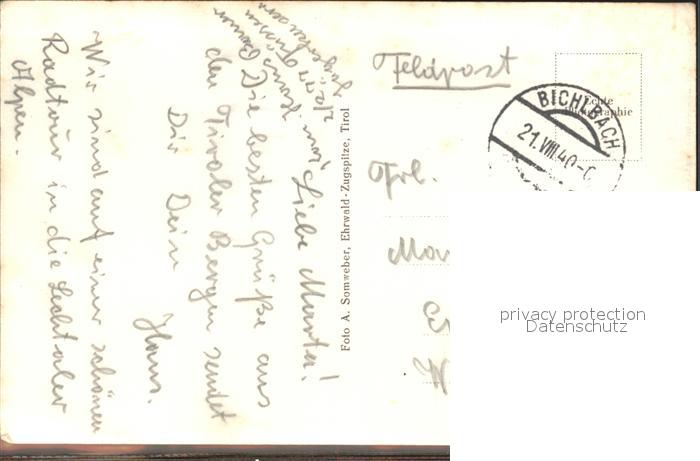 Liebe Marta!
Die besten Grüße aus
den Tiroler Bergen sendet
Dir Dein
Hans.
Wir sind auf einer schönen
Radtour in die Lechtaler
Alpen.
Foto A. Somweber, Ehrwald-Zugspitze, Tirol
Feldpost
Echte
BICHLBACH
21.VIII.40
Frl.
privacy protection
Datenschutz